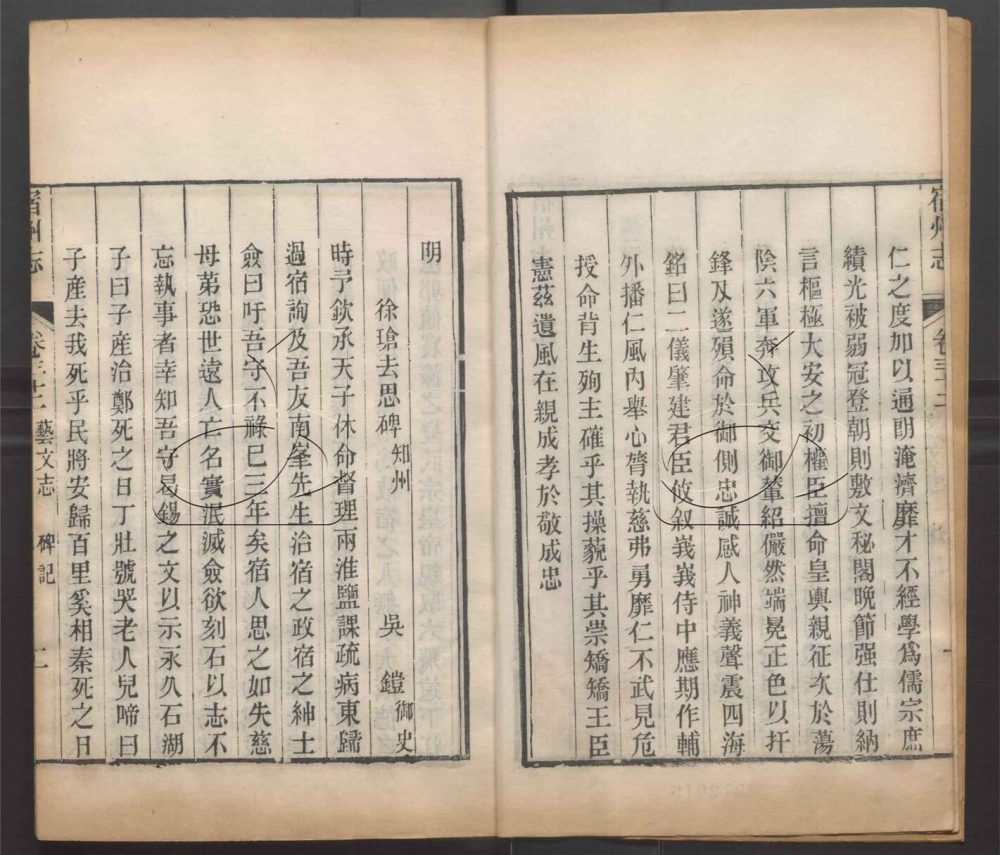 宿州志 卷三十二
仁之度加以通朗淹濟靡才不經學爲儒宗庶
績光被弱冠登朝則敷文秘閣晚節强仕則納
言樞極大安之初權臣擅命皇輿親征次於蕩
陰六軍奔攻兵交御輦紹儼然端冕正色以扞
鋒及遂殞命於御側忠誠感人神義聲震四海
銘曰二儀肇建君臣攸叙峩峩侍中應期作輔
外播仁風内舉心膂執慈弗勇靡仁不武見危
授命背生殉主確乎其操藐乎其崇矯矯王臣
憲茲遺風在親成孝於敬成忠
明
徐瑲去思碑 知州 吳鎧 御史
時予欽承天子休命督理兩淮鹽課疏病東歸
過宿詢及吾友南峯先生治宿之政宿之紳士
僉曰吁吾守不祿巳三年矣宿人思之如失慈
母第恐世遠人亡名實泯滅僉欲刻石以志不
忘執事者幸知吾守曷錫之文以示永久石湖
子曰子產治鄭死之日丁壯號哭老人兒啼曰
子產去我死乎民將安歸百里奚相秦死之日
宿州志 卷三十二 藝文志 碑記 二